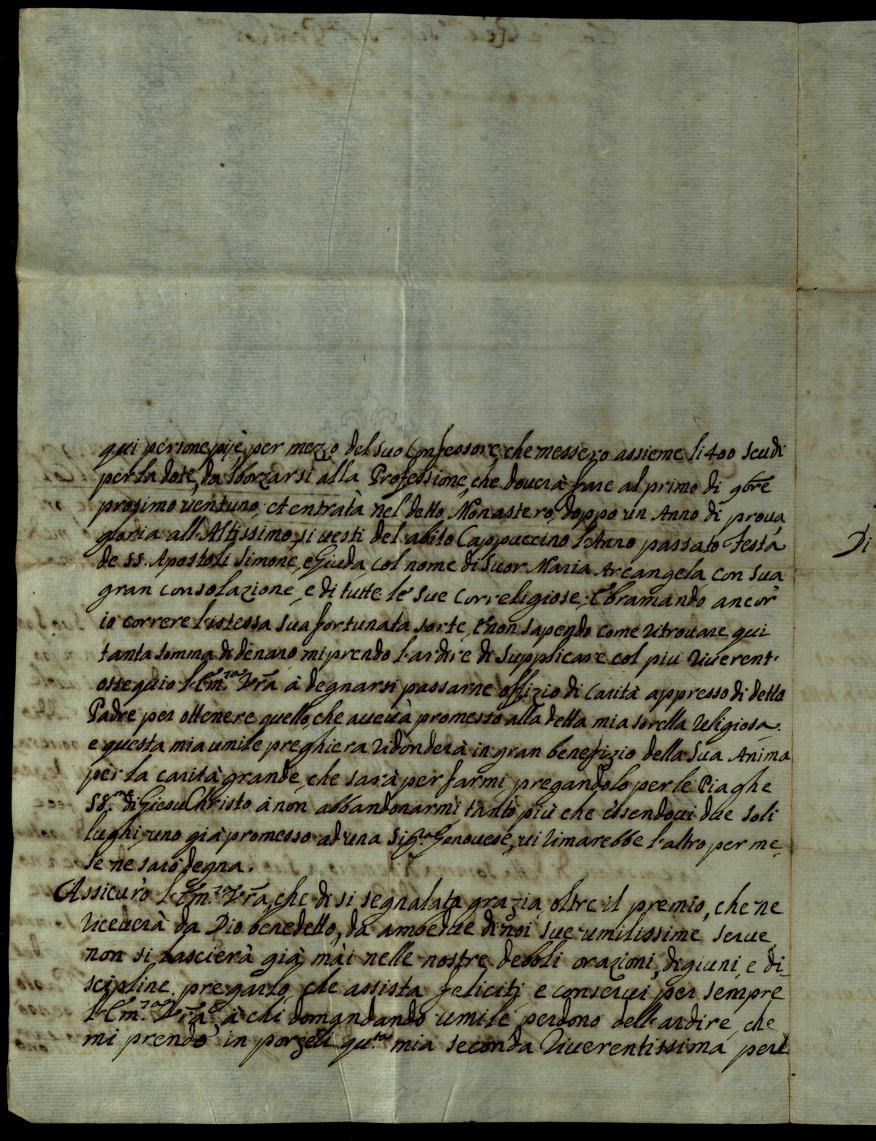 qui persone pie, per mezzo del suo Confessore, che messero assieme li 400 scudi
per la dote, da sborzarsi alla Professione, che douerà fare al primo di 9bre
prosimo uenturo, et entratà nel detto Monastero, doppo un Anno di proua
gloria all'Altissimo, si uesti del abito Cappuccino l'Anno passato festa
de SS. Apostoli Simone, e Giuda, col nome di Suor Maria Arcangela con sua
gran consolazione, e di tutte le sue correligiose; E bramando ancor
io correre l'istessa sua fortunata sorte, E non sapendo come ritrouare qui
tanta somma di denaro mi prendo l'ardire di supplicare col piu riuerent.
ossequio l'Em.za Vra à degnarsi passarne offizio di Carità appresso di detto
Padre per ottenere quello, che aueuà promesso alla detta mia sorella religiosa.
e questa mia umile preghiera ridonderà in gran benefizio della Sua Anima
per la carità grande, che sarà per farmi, pregandolo per le Piaghe
SS.me di Giesu Christo à non abbandonarmi tanto più che essendoui due soli
lughi, uno già promesso ad una Sig.ra Genouese, ui rimarebbe l'altro per me,
se ne sarò degna.
Assicuro l'Em.za Vra, che di si segnalata grazia, oltre il premio, che ne
riceuerà da Dio benedetto, da ambedue di noi sue umilissime serue
non si lascierà già mài nelle nostre deboli orazioni, digiuni, e di-
scipline, pregarlo che assista feliciti e conserui per sempre
l'Em.za Vra, à chi domandando umile perdono dell'ardire, che
mi prendo, in porgerli qu.ta mia seconda riuerentissima per l
Di